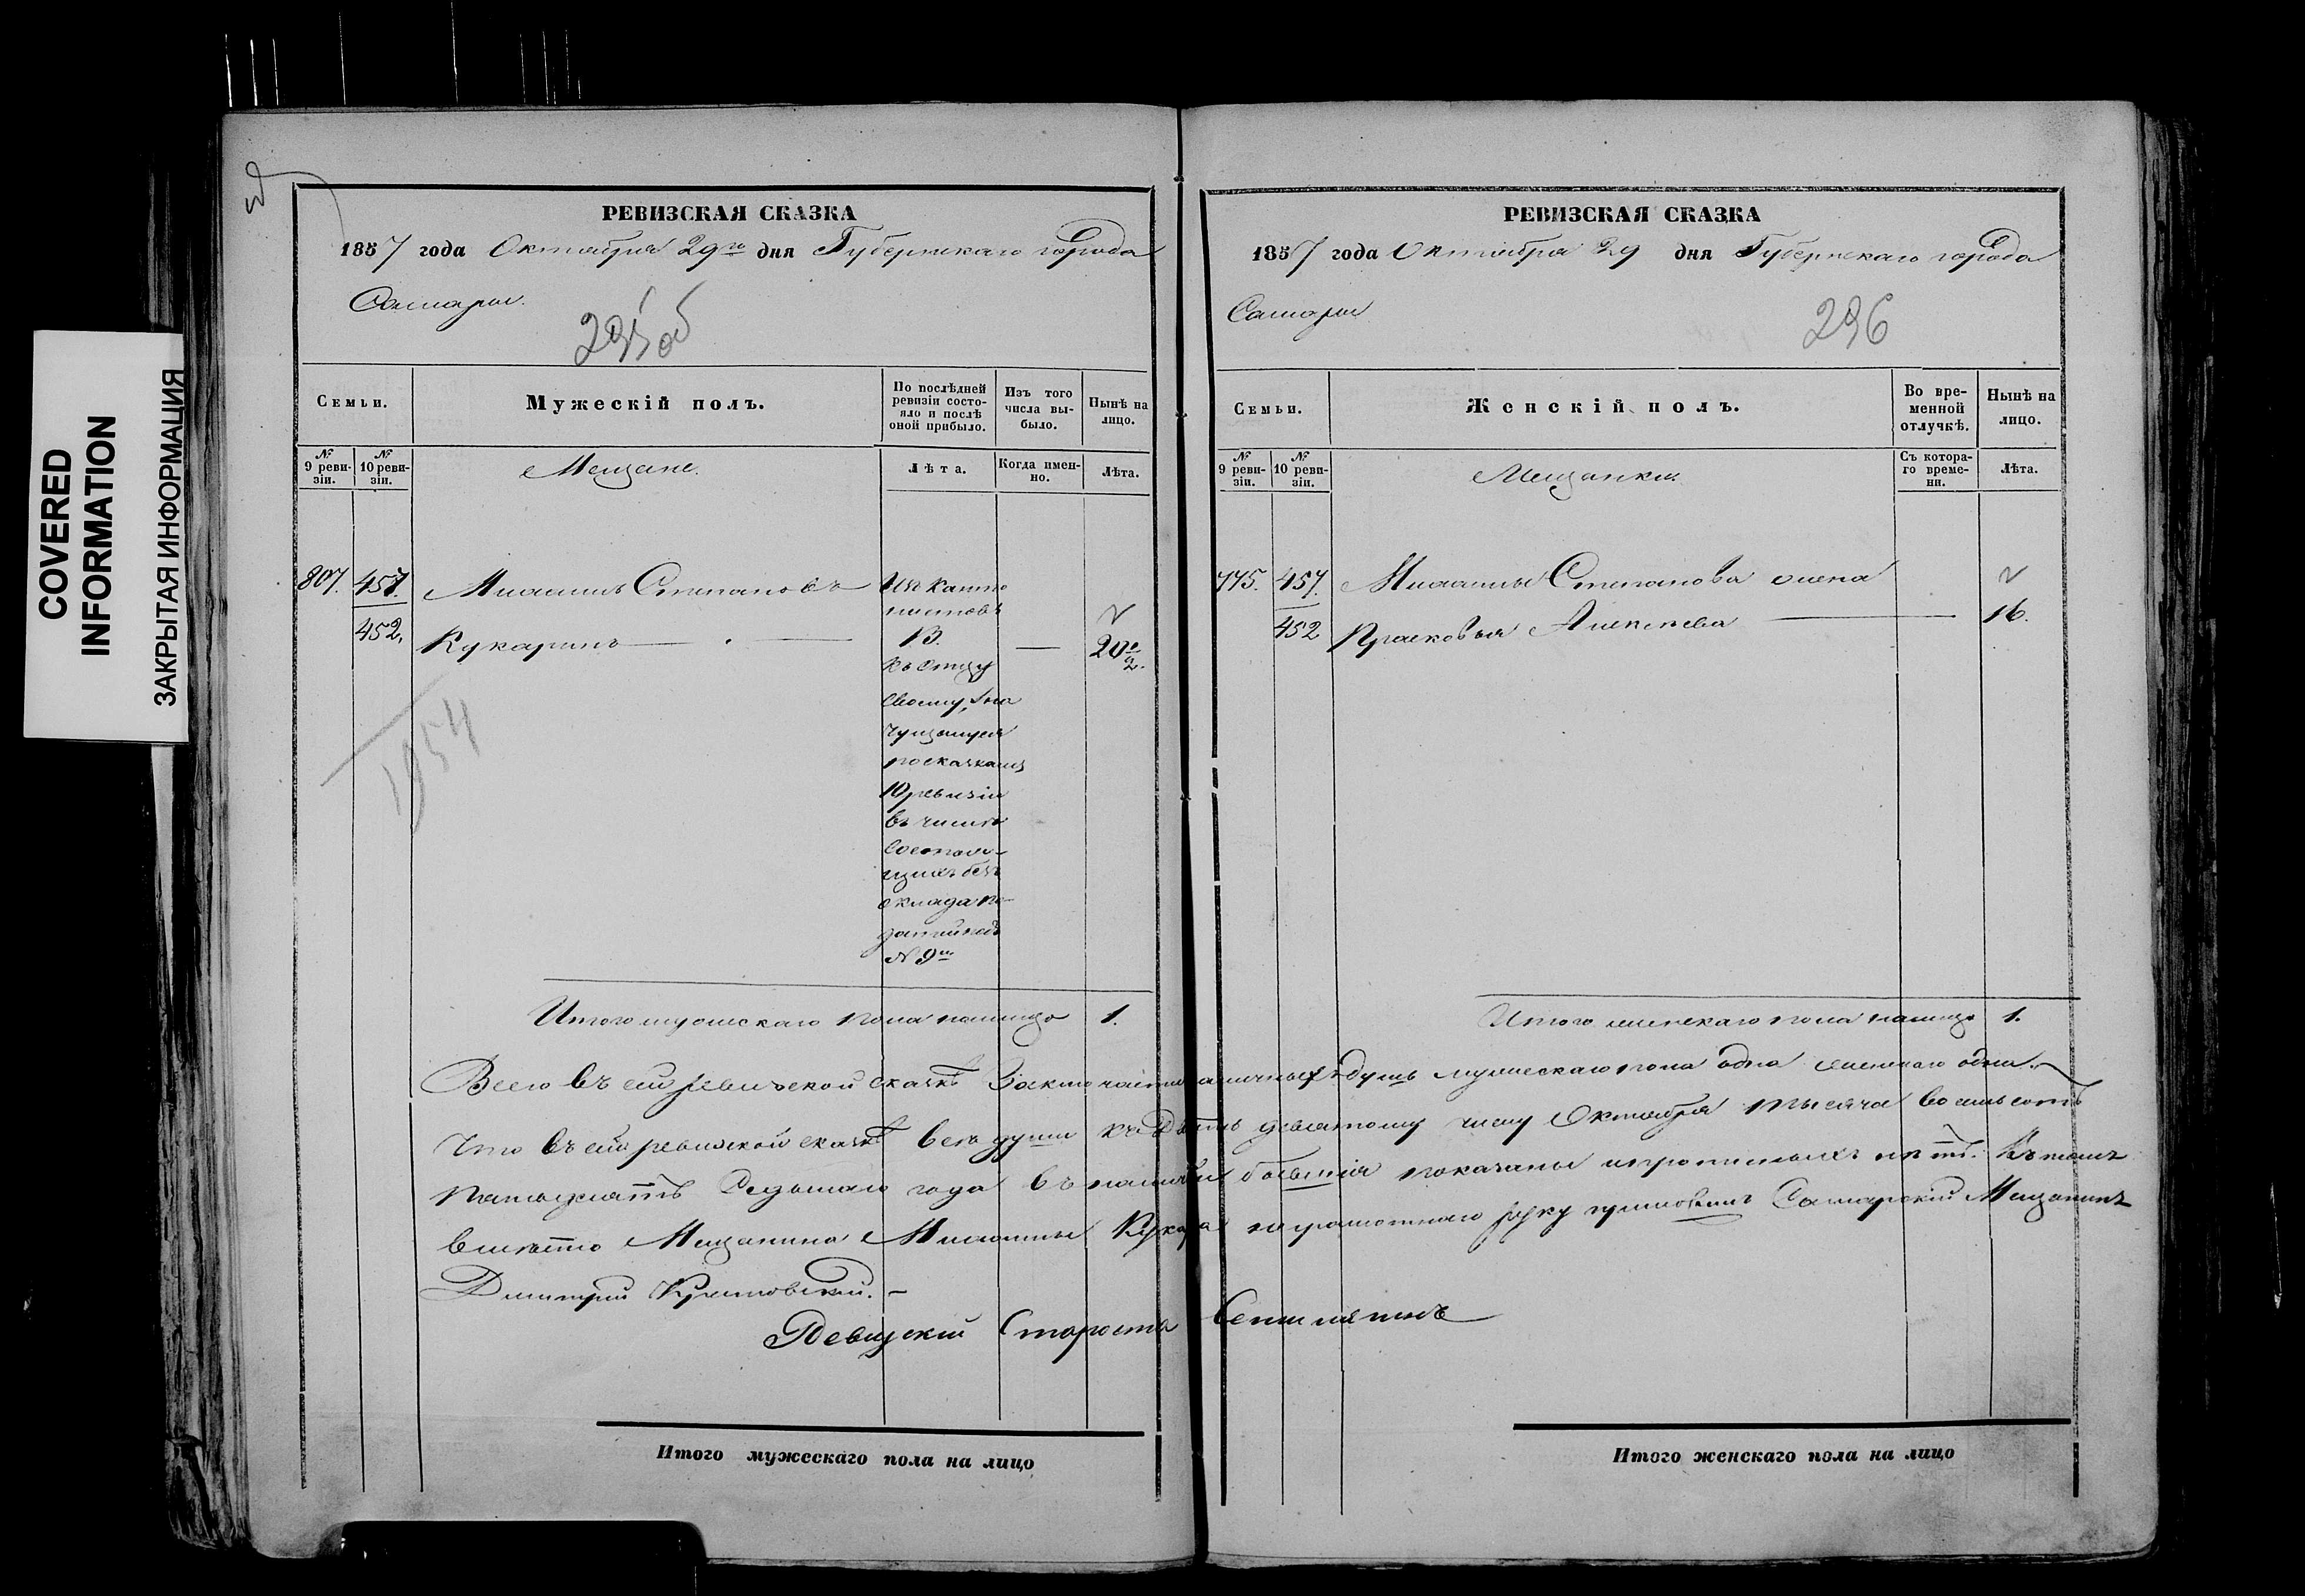 COVERED
INFORMATION
ЗАКРЫТАЯ ИНФОРМАЦИЯ
РЕВИЗСКАЯ СКАЗКА
1857 года Октября 29го дня Губернскаго города
Самары.
295об
Семьи.
Мужескій полъ.
По послѣдней ревизіи состояло и послѣ оной прибыло.
Изъ того числа выбыло.
Нынѣ на лицо.
№ 9 ревизіи.
№ 10 ревизіи.
Мещане.
Лѣта.
Когда именно.
Лѣта.
807.
457.
452.
Степановъ
Кукаринъ
Изъ Канто
нистовъ
13.
къ отцу
своему,
20
10 ревизіи
въ числѣ
состоя-
щихъ безъ
оклада
№ 9
1954
Итого мужескаго пола налицо 1.
Всего въ сей ревизской сказкѣ Заключается наличныхъ душъ мужескаго пола одна женскаго одна.
Что въ сей ревизской сказкѣ всѣ души къ Двадцать девятому числу Октября тысяча восемьсотъ
Пятьдесятъ Седьмаго года въ наличіи показаны и прописныхъ нѣтъ. Въ томъ
вмѣсто Мещанина Кукарина неграмотнаго руку приложилъ Самарскій Мещанинъ
Дмитрій
Ревизскій Староста
Итого мужескаго пола на лицо
РЕВИЗСКАЯ СКАЗКА
1857 года Октября 29 дня Губернскаго города
Самары
296
Семьи.
Женскій полъ.
Во временной отлучкѣ.
Нынѣ на лицо.
№ 9 ревизіи.
№ 10 ревизіи.
Мещанки.
Съ котораго времени.
Лѣта.
775.
457.
452
Степанова жена
Прасковья Алексѣева
16.
Итого женскаго пола налицо 1.
Итого женскаго пола на лицо